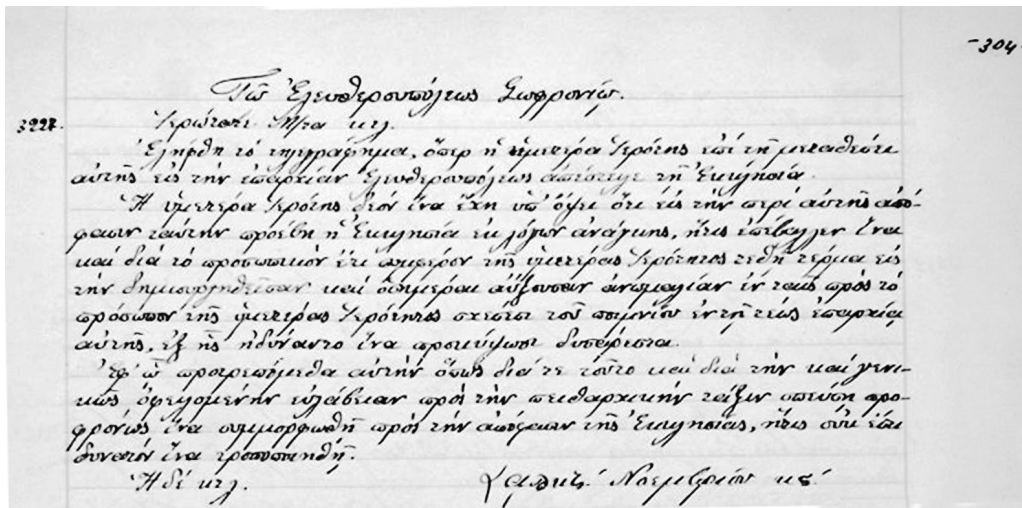 -304
Τῷ Ἐλευθερουπόλεως Σωφρονίῳ.
3227. Ἱερώτατε Μῆτα κτλ.
Ἐλήφθη τὸ τηλεγράφημα, ὅπερ ἡ ὑμετέρα Ἱερότης ἐπὶ τῇ μεταθέσει
αὐτῆς εἰς τὴν ἐπαρχίαν Ἐλευθερουπόλεως ἀπέστειλε τῇ Ἐκκλησίᾳ.
Ἡ ὑμετέρα Ἱερότης δέον ἵνα ἔχῃ ὑπ' ὄψει ὅτι εἰς τὴν περὶ αὐτῆς ἀπό-
φασιν ταύτην προέβη ἡ Ἐκκλησία ἐκ λόγων ἀνάγκης, ἥτις ἐπέβαλλεν ἵνα
καὶ διὰ τὸ προσωπικὸν ἔτι συμφέρον τῆς ὑμετέρας Ἱερότητος τεθῇ τέρμα εἰς
τὴν δημιουργηθεῖσαν καὶ ὁσημέραι αὔξουσαν ἀνωμαλίαν ἐν ταῖς πρὸς τὸ
πρόσωπον τῆς ὑμετέρας Ἱερότητος σχέσεσι τοῦ ποιμνίου ἐν τῇ τέως ἐπαρχίᾳ
αὐτῆς, ἐξ ἧς ἠδύναντο ἵνα προκύψωσι δυσάρεστα.
Ἐφ' ᾧ προτρεπόμεθα αὐτὴν ὅπως διά τε τοῦτο καὶ διὰ τὴν καὶ γενι-
κῶς ὀφειλομένην εὐλάβειαν πρὸς τὴν πειθαρχικὴν τάξιν σπεύσῃ προ-
φρόνως ἵνα συμμορφωθῇ πρὸς τὴν ἀπόφασιν τῆς Ἐκκλησίας, ἥτις οὐκ ἔστι
δυνατὸν ἵνα τροποποιηθῇ.
Ἡ δὲ κτλ. Νοεμβρίου κς΄